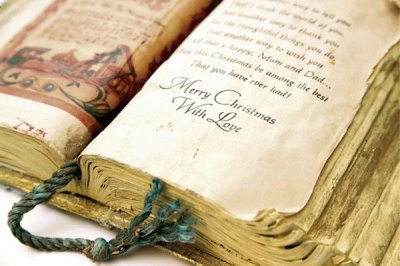 way to tell you
think the world of you,
Another way to thank you
For the thoughtful things you do,
Just another way to wish you
that's happy, Mum and Dad...
this Christmas be among the best
That you have ever had!
Merry Christmas
With Love